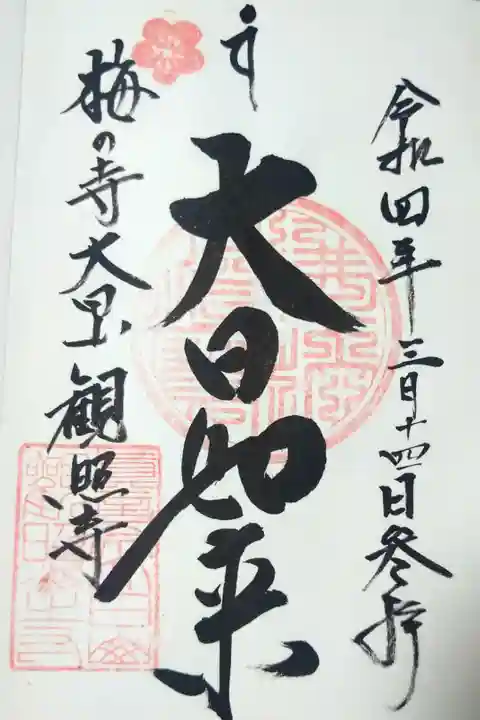 令和四年三月十四日参拝
大日如来
梅の寺大黒観照寺